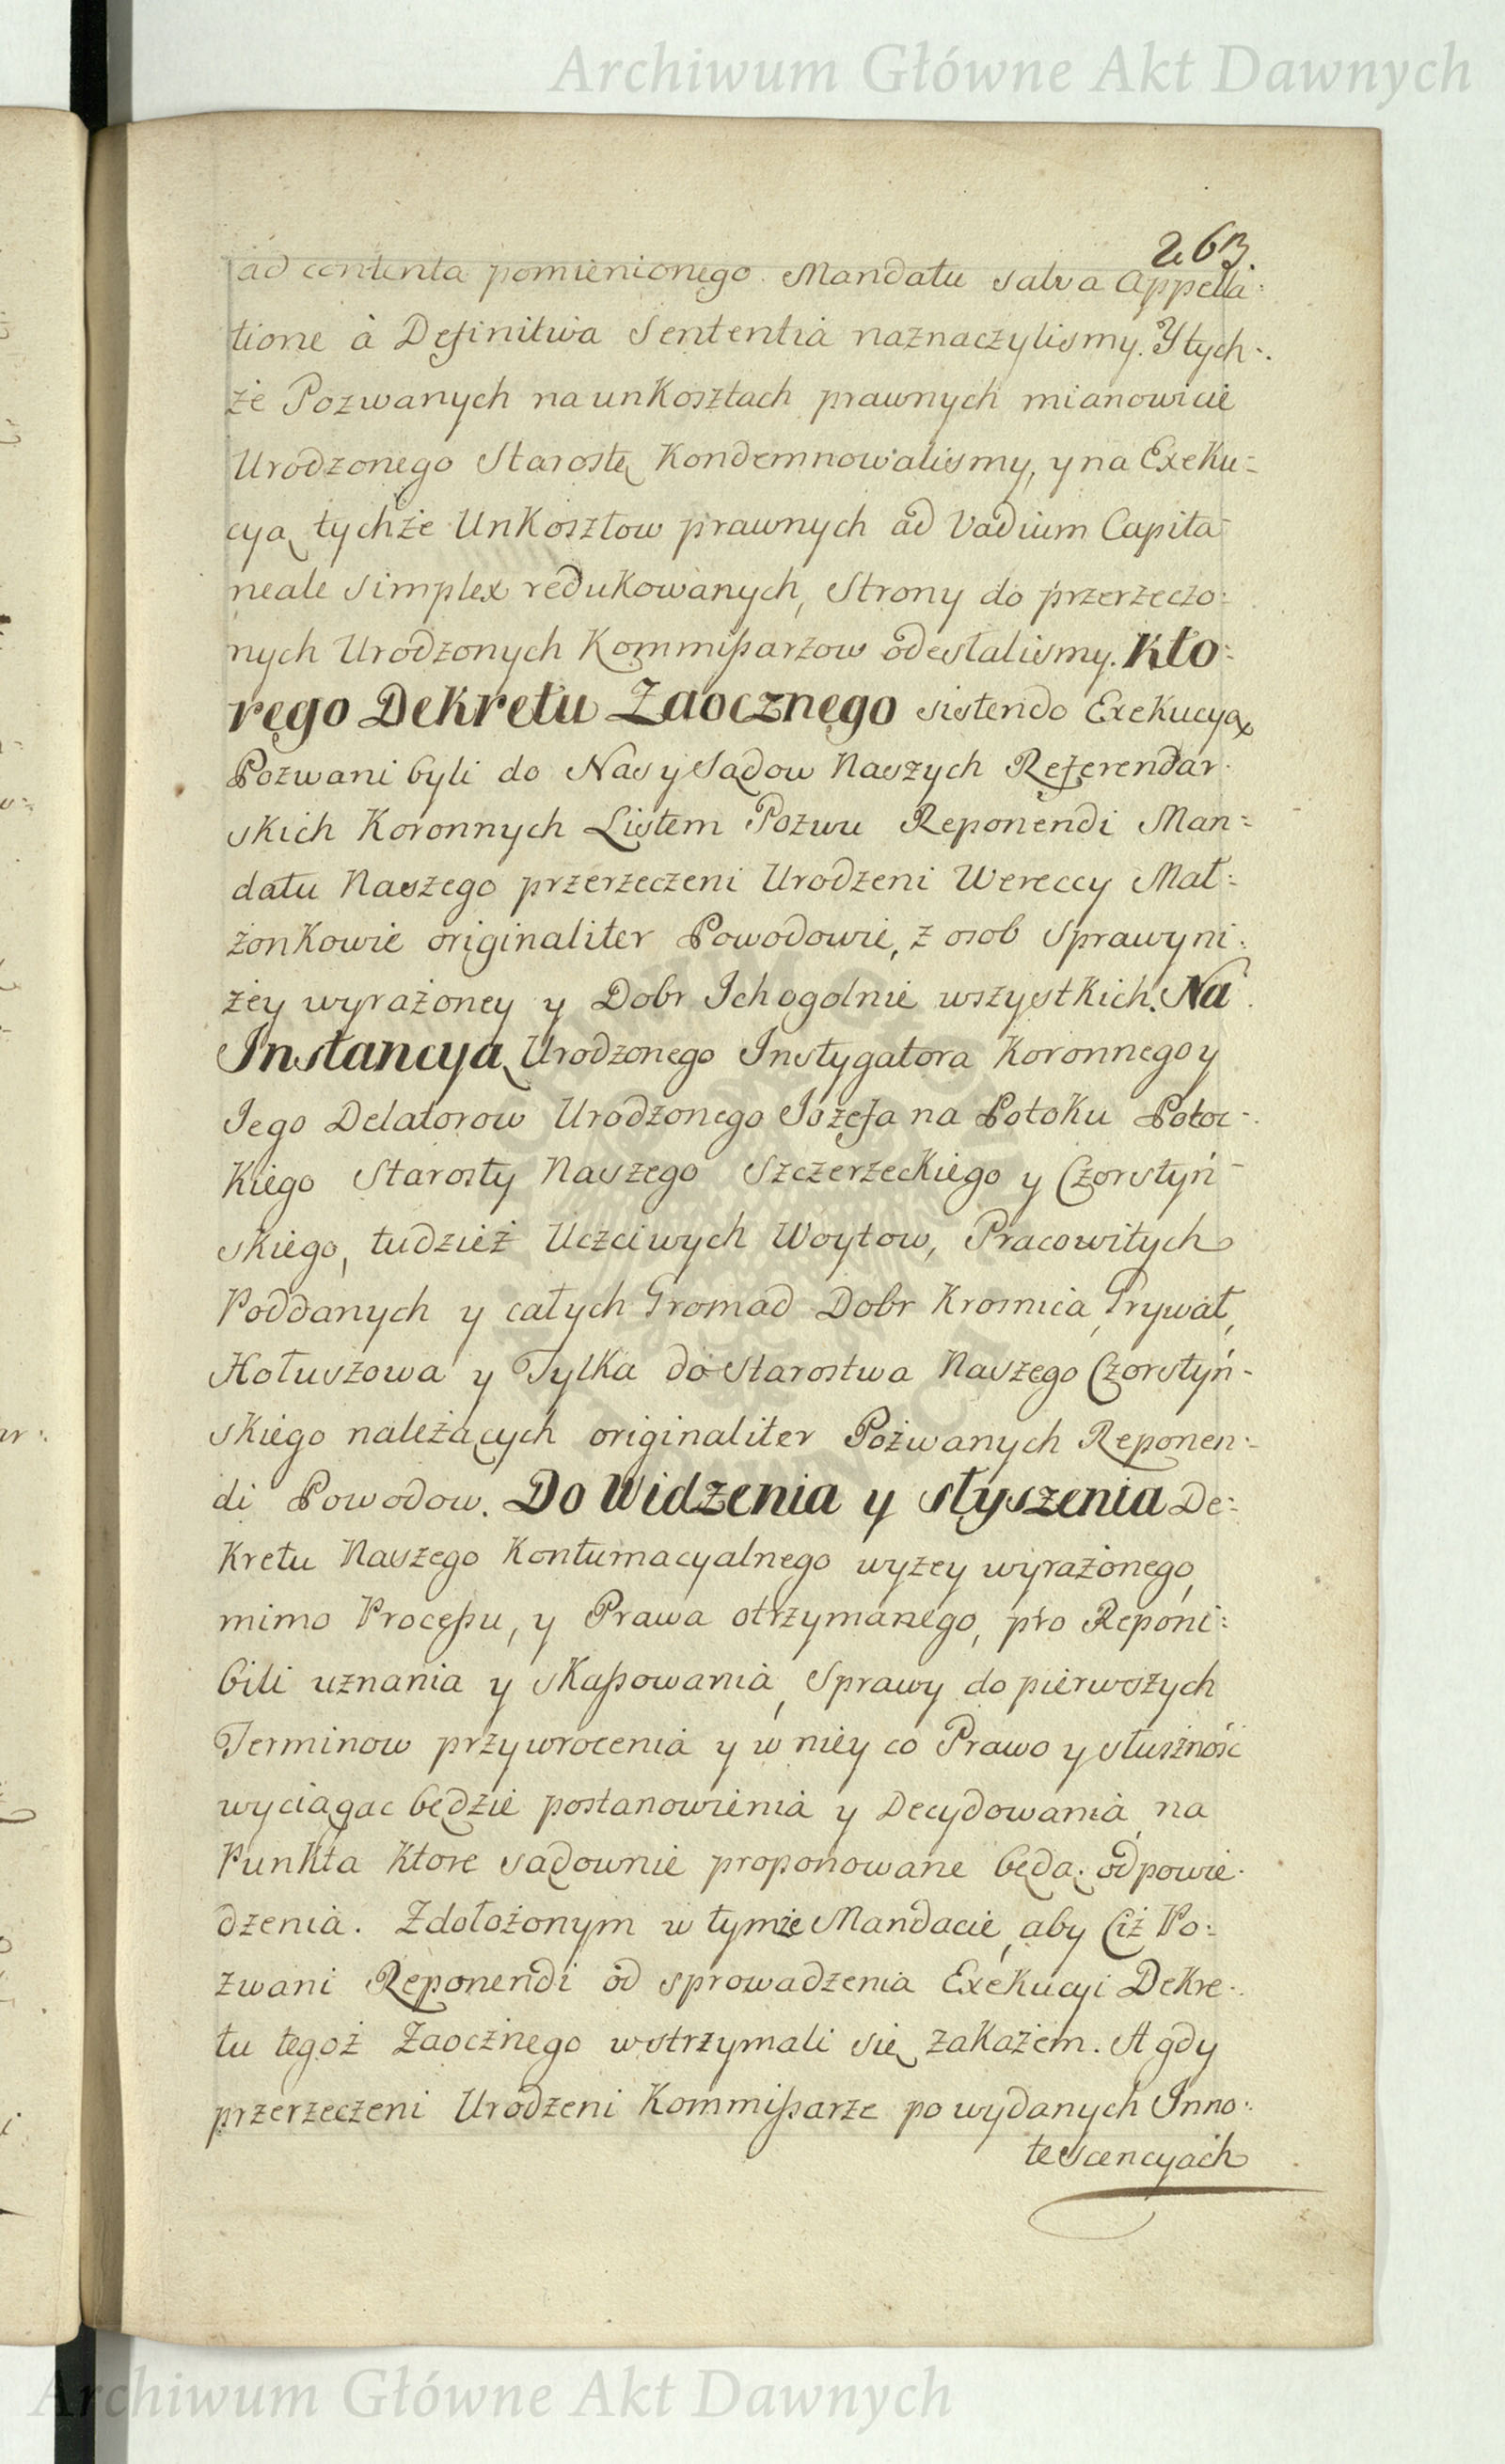 Archiwum Główne Akt Dawnych
263.
ad contenta pomienionego Mandatu salva Appella:
tione à Definitiva Sententia naznaczylismy. Y tych:
że Pozwanych na unkosztach prawnych mianowicie
Urodzonego Starostę Kondemnowalismy, y na Exeku=
cyą tychże Unkosztow prawnych ad Vadium Capita=
neale simplex redukowanych, Strony do przerzeczo:
nych Urodzonych Kommißarzow odesłalismy. Kto:
rego Dekretu Zaocznego sistendo Exekucyą
Pozwani byli do Nas y Sądow Naszych Referendar:
skich Koronnych Listem Pozwu Reponendi Man=
datu Naszego przerzeczeni Urodzeni Wereccy Mał:
żonkowie originaliter Powodowie, z osob Sprawy ni:
żey wyrażoney y Dobr Ich ogolnie wszystkich. Na
Instancyą Urodzonego Instygatora Koronnego y
Jego Delatorow Urodzonego Jozefa na Potoku Potoc=
kiego Starosty Naszego Szczerzeckiego y Czorstyń=
skiego, tudzież Uczciwych Woytow, Pracowitych
Poddanych y całych Gromad Dobr Krosnica, Prywat,
Hołuszowa y Tylka do Starostwa Naszego Czorstyń=
skiego należących originaliter Pozwanych Reponen=
di Powodow. Do Widzenia y słyszenia De=
kretu Naszego Kontumacyalnego wyżey wyrażonego,
mimo Proceßu, y Prawa otrzymanego, pro Reponi:
bili uznania y skaßowania, Sprawy do pierwszych
Terminow przywrocenia y w niey co Prawo y słuszność
wyciągac będzie postanowienia y Decydowania, na
Punkta ktore sądownie proponowane będą odpowie:
dzenia. Zdołożonym w tymże Mandacie, aby Ciż Po:
zwani Reponendi od sprowadzenia Exekucyi Dekre:
tu tegoż Zaocznego wstrzymali się zakazem. A gdy
przerzeczeni Urodzeni Kommißarze po wydanych Inno:
tescencyach
Archiwum Główne Akt Dawnych